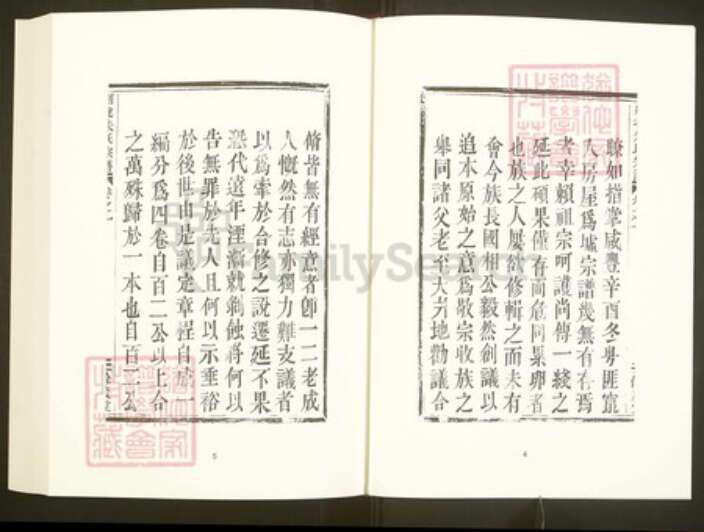 瞭如指掌咸豐辛酉冬粵匪竄
人房屋爲墟宗譜幾無有存焉
者幸賴祖宗呵護尚傳一綫之
延此碩果僅存尚危同纍卵者
也族之人屢欲修輯之而未有
會今族長國相公毅然創議以
追本原始之意爲敬宗收族之
舉同諸父老至大方地勸議合
4
脩皆無有經意者卽一二老成
人慨然有志亦獨力難支議者
以爲牽於合修之說遷延不果
恐代遠年湮漸就剝蝕將何以
告無罪於先人且何以示垂裕
於後世由是議定章程自成一
編分爲四卷自百二公以上合
之萬殊歸於一本也自百二公
5
FamilySearch